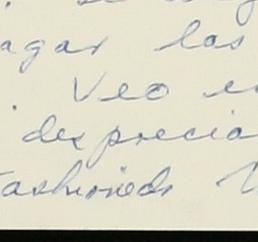 agar las
. Veo e
desprecia
fashioneds V